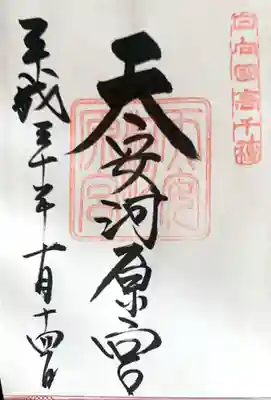 日向國高千穂
天安河原宮
平成三十年十月十四日